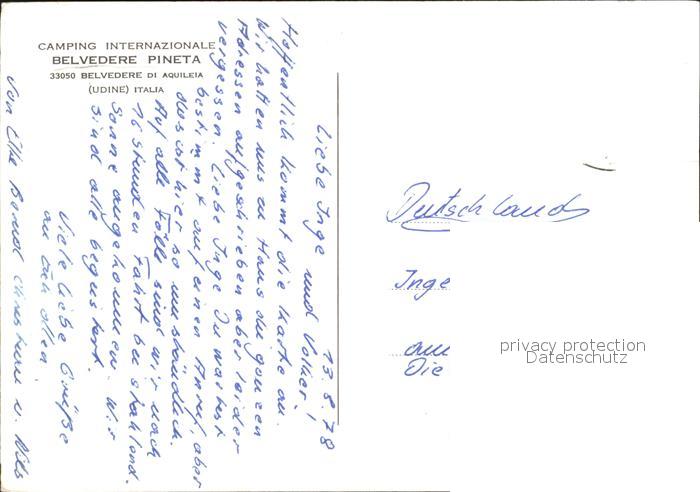 CAMPING INTERNAZIONALE
BELVEDERE PINETA
33050 BELVEDERE DI AQUILEIA
(UDINE) ITALIA
13.8.78
Liebe Inge und Volker!
Hoffentlich kommt die Karte an.
Wir hatten uns zu Haus die ganzen
Adressen aufgeschrieben aber leider
vergessen. Liebe Inge Du wartest
bestimmt auf einen Anruf, aber
das ist hier so umständlich.
Auf alle Fälle sind wir nach
16 Stunden Fahrt bei strahlend.
Sonne angekommen. Wir
sind alle begeistert.
Viele liebe Grüße
an Euch allen
von Elke Bernd Christian u. Nils
Deutschland
Inge
Die
privacy protection
Datenschutz